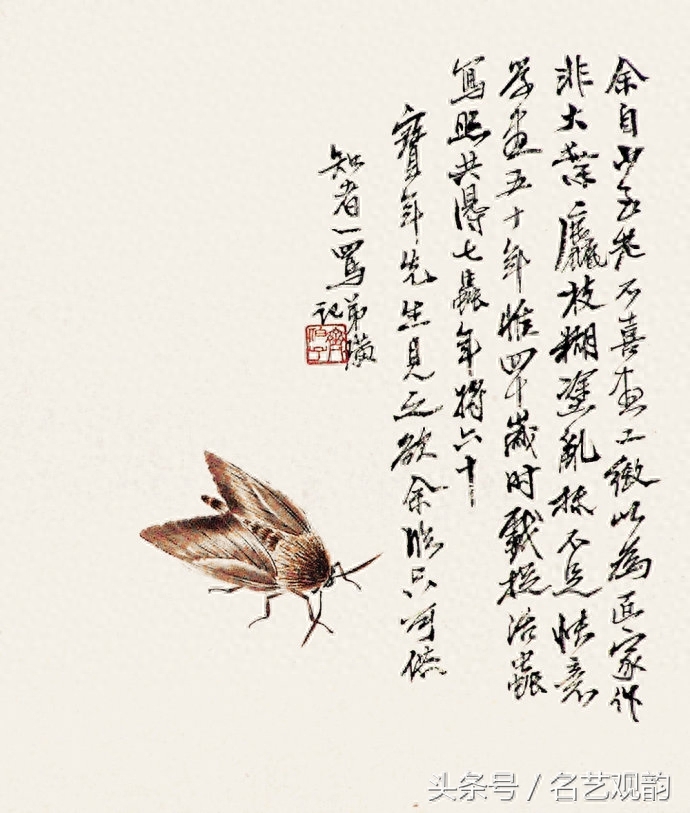 余自少至老不喜畫工緻以為匠家作
非大葉麤枝糊塗亂抹不足快意
學畫五十年惟四十歲时戲捉活蟲
寫照共得七蟲年將六十
寶年先生見之欲余臨只可供
知者一罵弟璜
記
头条号 / 名艺观韵